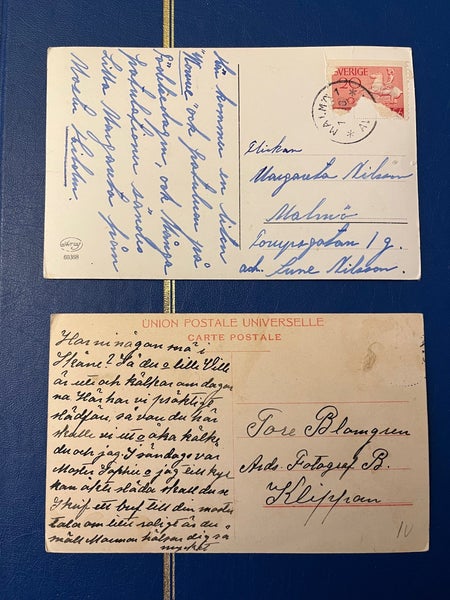 Här kommer en liten
"Nomie" och gratulerar på
födelsedagen, och många
gratulationer sändes
Lilla Margareta från
Moster Lislen.
SVERIGE
20
MALMÖ 1
Flickan
Margareta Nilsson
Malmö
Tompsgatan 1 g.
adr. Sune Nilsson.
60388
UNION POSTALE UNIVERSELLE
CARTE POSTALE
Har ni någan må i
Skåne? Så du o lille Ville
är ute och kälkar om dagar
na Här har vi präktigt
slädfön, så van du här
skulle vi ut o åka kälke
du och jag. I söndags var
Moster Sophie o jag till kyr
kan åkte släda skall du se
Skrif ett bref till din moster
tala om litet roligt är du o
snäll Mamma hälsar dig så
mycket
Tore Blomgren
Ads. Fotograf B.
Klippan
IV